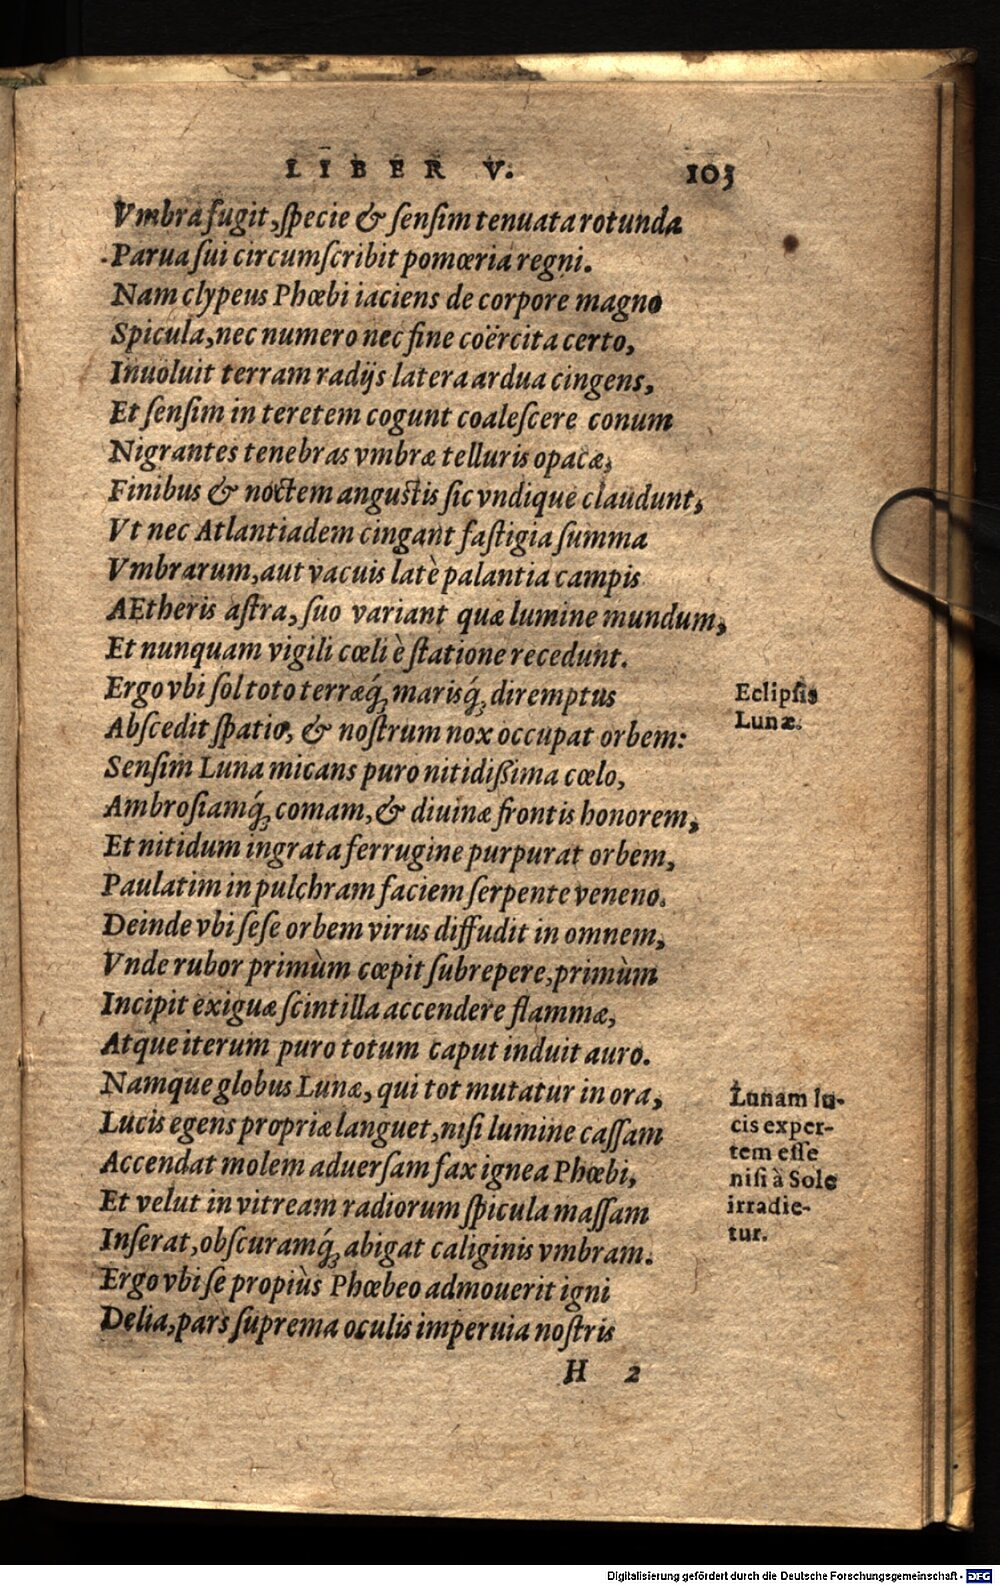 LIBER V. 103
Vmbra fugit, ſpecie & ſenſim tenuata rotunda
Parua ſui circumſcribit pomœria regni.
Nam clypeus Phœbi iaciens de corpore magno
Spicula, nec numero nec fine coërcita certo,
Inuoluit terram radijs latera ardua cingens,
Et ſenſim in teretem cogunt coaleſcere conum
Nigrantes tenebras vmbræ telluris opacæ,
Finibus & noctem anguſtis ſic vndique claudunt,
Vt nec Atlantiadem cingant faſtigia ſumma
Vmbrarum, aut vacuis latè palantia campis
AEtheris aſtra, ſuo variant quæ lumine mundum,
Et nunquam vigili cœli è ſtatione recedunt.
Ergo vbi ſol toto terræq́; marisq́; diremptus
Eclipſis
Abſcedit ſpatio, & noſtrum nox occupat orbem:
Lunæ.
Senſim Luna micans puro nitidißima cœlo,
Ambroſiamq́; comam, & diuinæ frontis honorem,
Et nitidum ingrata ferrugine purpurat orbem,
Paulatim in pulchram faciem ſerpente veneno.
Deinde vbi ſeſe orbem virus diffudit in omnem,
Vnde rubor primùm cœpit ſubrepere, primùm
Incipit exiguæ ſcintilla accendere flammæ,
Atque iterum puro totum caput induit auro.
Namque globus Lunæ, qui tot mutatur in ora,
Lucis egens propriæ languet, niſi lumine caſſam
Accendat molem aduerſam fax ignea Phœbi,
Et velut in vitream radiorum ſpicula maſſam
Inſerat, obſcuramq́; abigat caliginis vmbram.
Lunam lu-
cis exper-
tem eſſe
niſi à Sole
irradie-
tur.
Ergo vbi ſe propiùs Phœbeo admouerit igni
Delia, pars ſuprema oculis imperuia noſtris
H 2
Digitalisierung gefördert durch die Deutsche Forschungsgemeinschaft - DFG